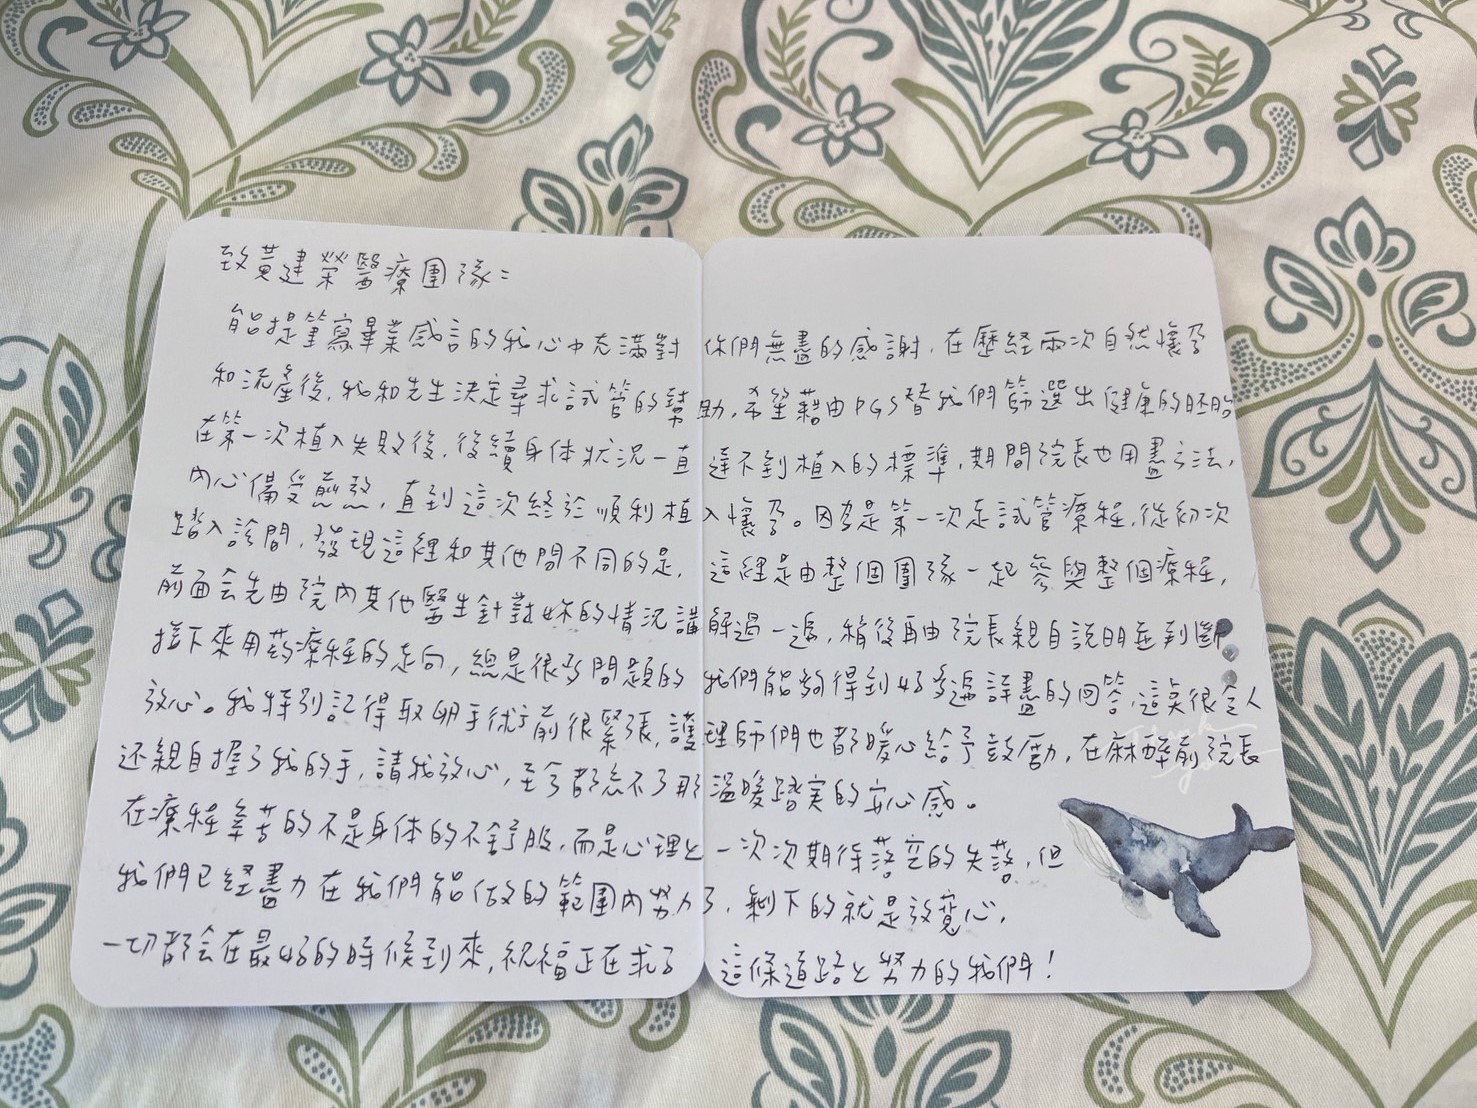 致黃建榮醫療團隊：
能提筆寫畢業感言的我心中充滿對你們無盡的感謝，在歷經兩次自然懷孕
和流產後，我和先生決定尋求試管的幫助，希望藉由PGS替我們篩選出健康的胚胎
在第一次植入失敗後，後續身体狀況一直達不到植入的標準，期間院長也用盡方法，
內心備受煎熬，直到這次終於順利植入懷孕。因為是第一次走試管療程，從初次
踏入診間，發現這裡和其他間不同的是，這裡是由整個團隊一起參與整個療程，
前面会先由院內其他醫生針對妳的情況講解過一遍，稍後再由院長親自說明並判斷
接下來用药療程的走向，總是很多問題的我們能夠得到好多遍詳盡的回答，這真很令人
放心。我特別記得取卵手術前很緊張，護理師們也都暖心給予鼓勵，在麻醉前院長
还親自握了我的手，請我放心，至今都忘不了那溫暖踏实的安心感。
在療程辛苦的不是身体的不舒服，而是心理上一次次期待落空的失落，但
我們已經盡力在我們能做的範圍內努力了，剩下的就是放寬心，
一切都会在最好的時候到來，祝福正在求子這條道路上努力的我們！
Thank you